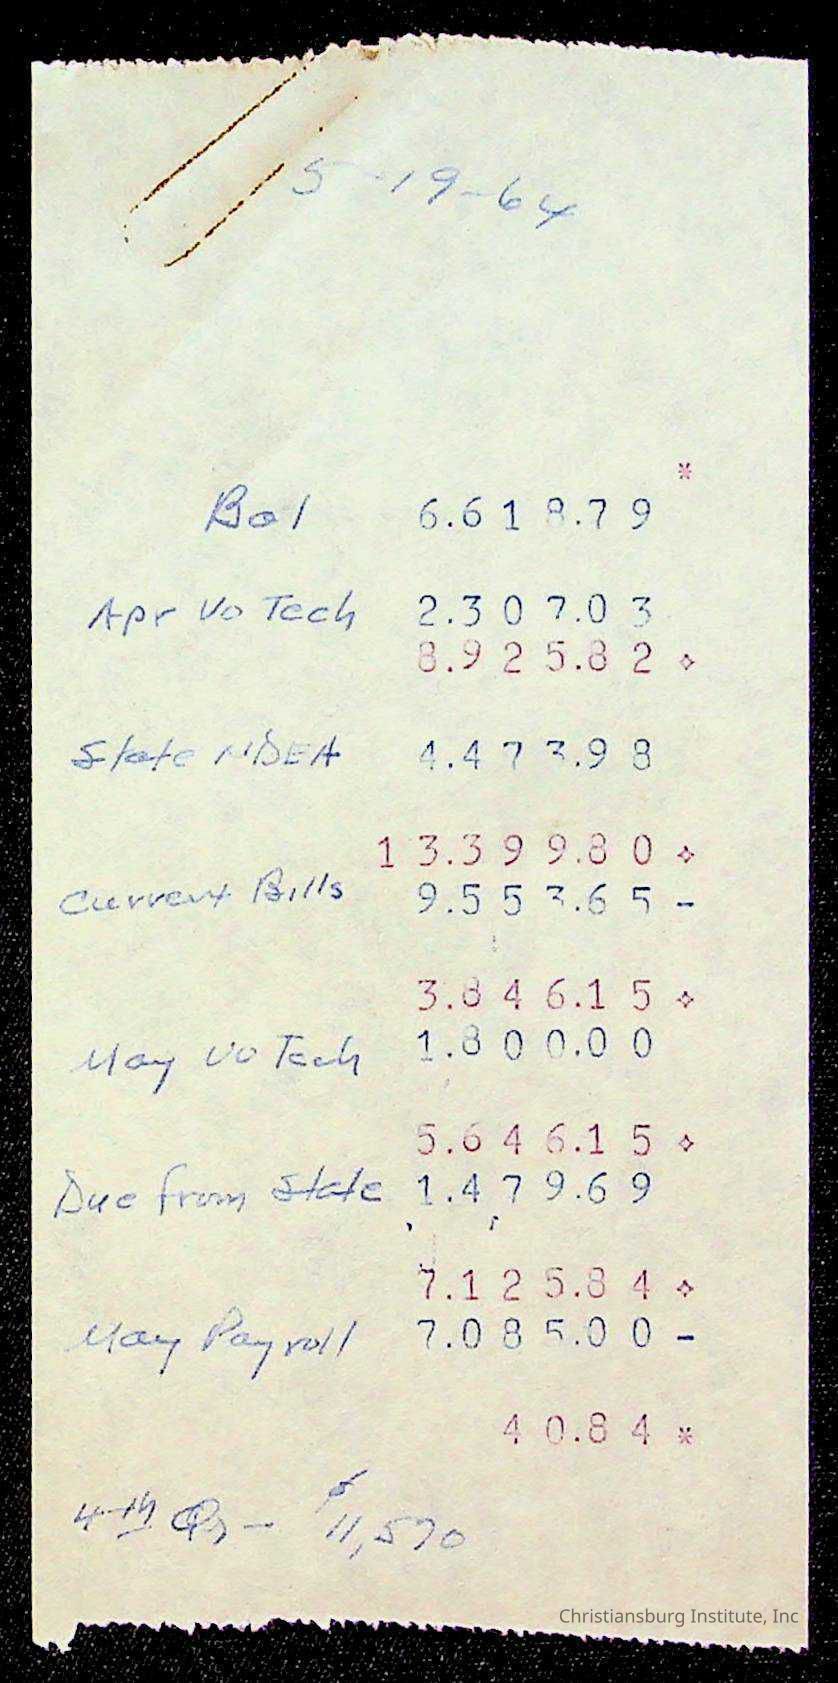 5-19-64
*
Bal 6.618.79
Apr Vo Tech 2.307.03
8.925.82 ⋄
State NDEA 4.473.98
13.399.80 ⋄
Current Bills 9.553.65 -
3.846.15 ⋄
May Vo Tech 1.800.00
5.646.15 ⋄
Due from State 1.479.69
7.125.84 ⋄
May Payroll 7.085.00 -
40.84 *
4th Qr - $11,570
Christiansburg Institute, Inc